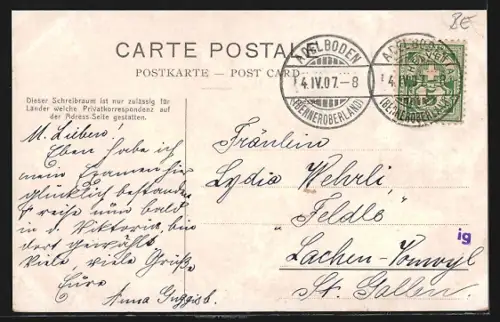 BE
CARTE POSTALE
POSTKARTE — POST CARD
ADELBODEN
4.IV.07.–8
(BERNEROBERLAND)
ADELBODEN
4.IV.07.–8
(BERNEROBERLAND)
Dieser Schreibraum ist nur zulässig für
Länder welche Privatkorrespondenz auf
der Adress-Seite gestatten.
M. Liebero!
Eben habe ich
mein Examen hier
glücklich bestanden
reise nun bald
in d. Viktoria, bin
dort gewählt.
Viele, viele Grüße
Eure
Anna
Fräulein
Lydia Wehrli,
"Feldle"
Lachen-Vonwyl
St. Gallen.
ig